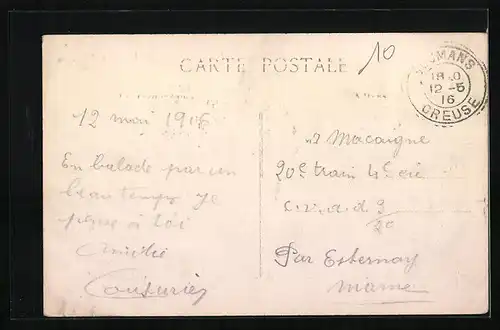 CARTE POSTALE
10
MANS
18 0
12 -5
16
CREUSE
12 mai 1916
Mr Macaigne
En balade par un
20e train 4e cie
beau temps je
c.v.a.d 3
20
pense à toi
Par Esternay
Amitié
Marne